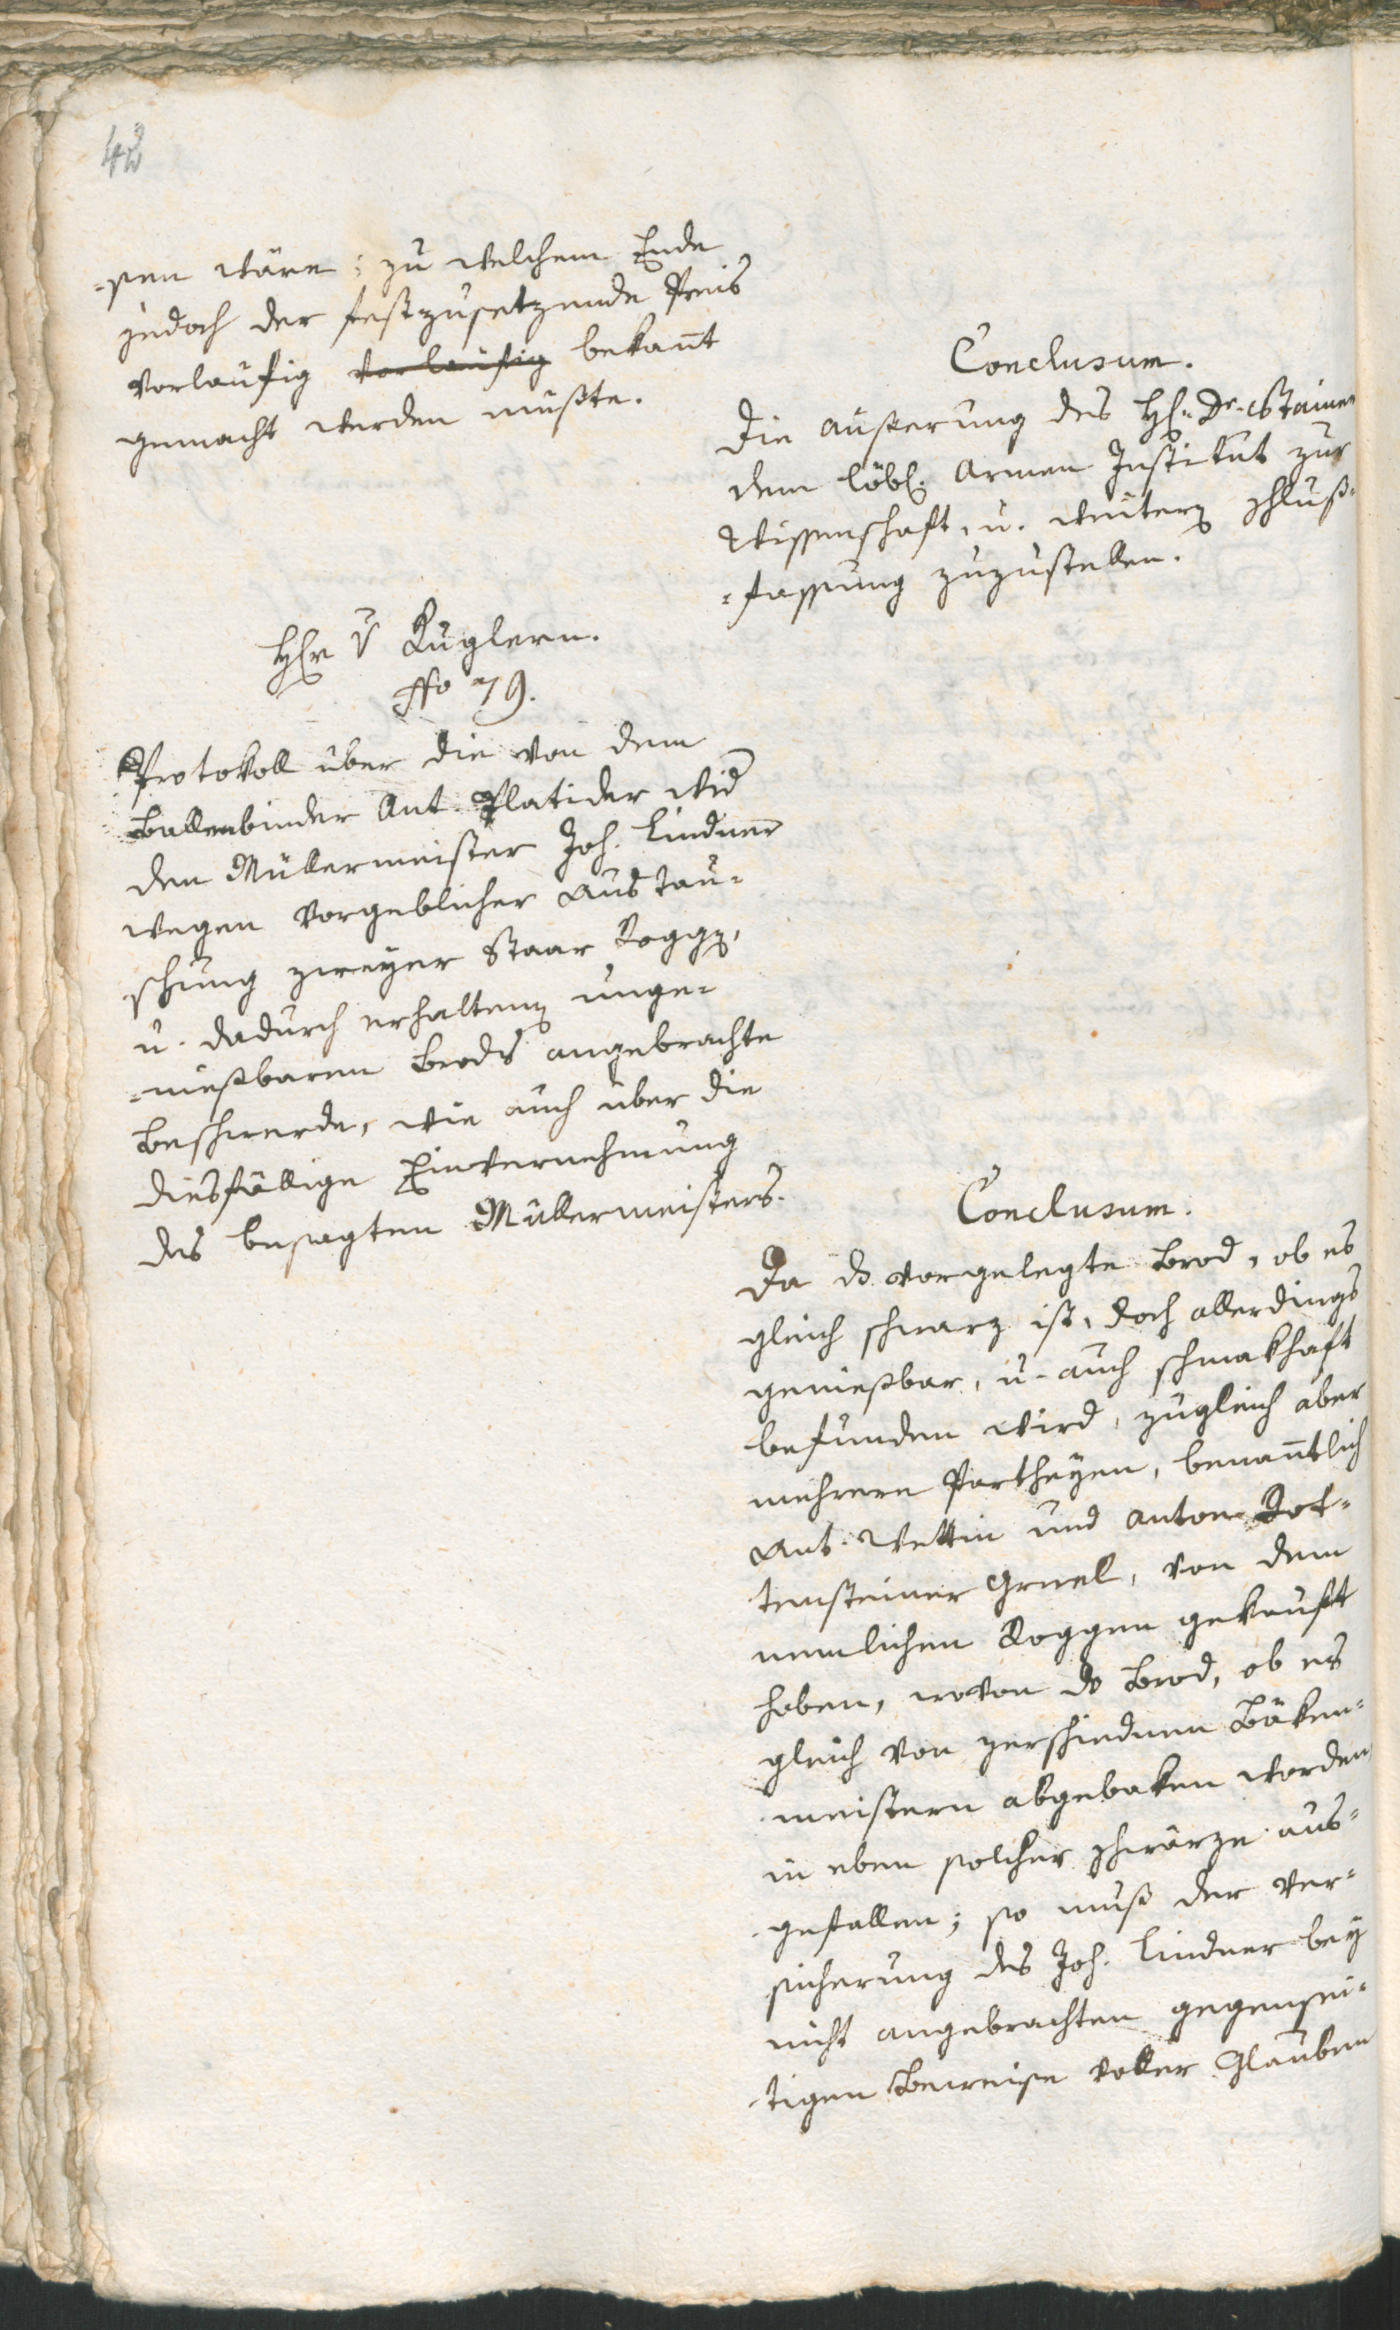 42
-sen wäre; zu welchem Ende
jedoch der festzusetzende Preis
vorlaüfig vorlaüfig bekan̅t
gemacht werden müßte.
Conclusum.
Die aüßerung des H: Dr.
dem löbl: Armen Institut zur
Wissenschaft, u. weitern schluß-
-fassung zuzustellen.
Hr v Kuglern.
No 79.
Protokoll über die von dem
Ballenbinder Ant. Platider wid
den Müllermeister Joh. Lindner
wegen vorgeblicher Austau-
schung zweyer Staar Roggen,
u. dadurch erhaltenen unge-
-nießbaren Brods angebrachte
Beschwerde, wie auch über die
diesfällige Einvernehmung
des besagten Müllermeisters.
Conclusum.
Da ds vorgelegte Brod, ob es
gleich schwarz ist, doch allerdings
genießbar, u. auch schmakhaft
befunden wird, zugleich aber
mehrere Partheyen, benan̅tlich
Ant. Wettin und Anton Rot-
tensteiner Gruel, von dem
nemlichen Roggen gekauft
haben, wovon ds Brod, ob es
gleich von verschiednen Bäken-
meistern abgebaken worden,
in eben solcher schwärze aus-
gefallen; so muß der Ver-
sicherung des Joh. Lindner bey
nicht angebrachten gegensei-
-tigen Beweise voller Glauben